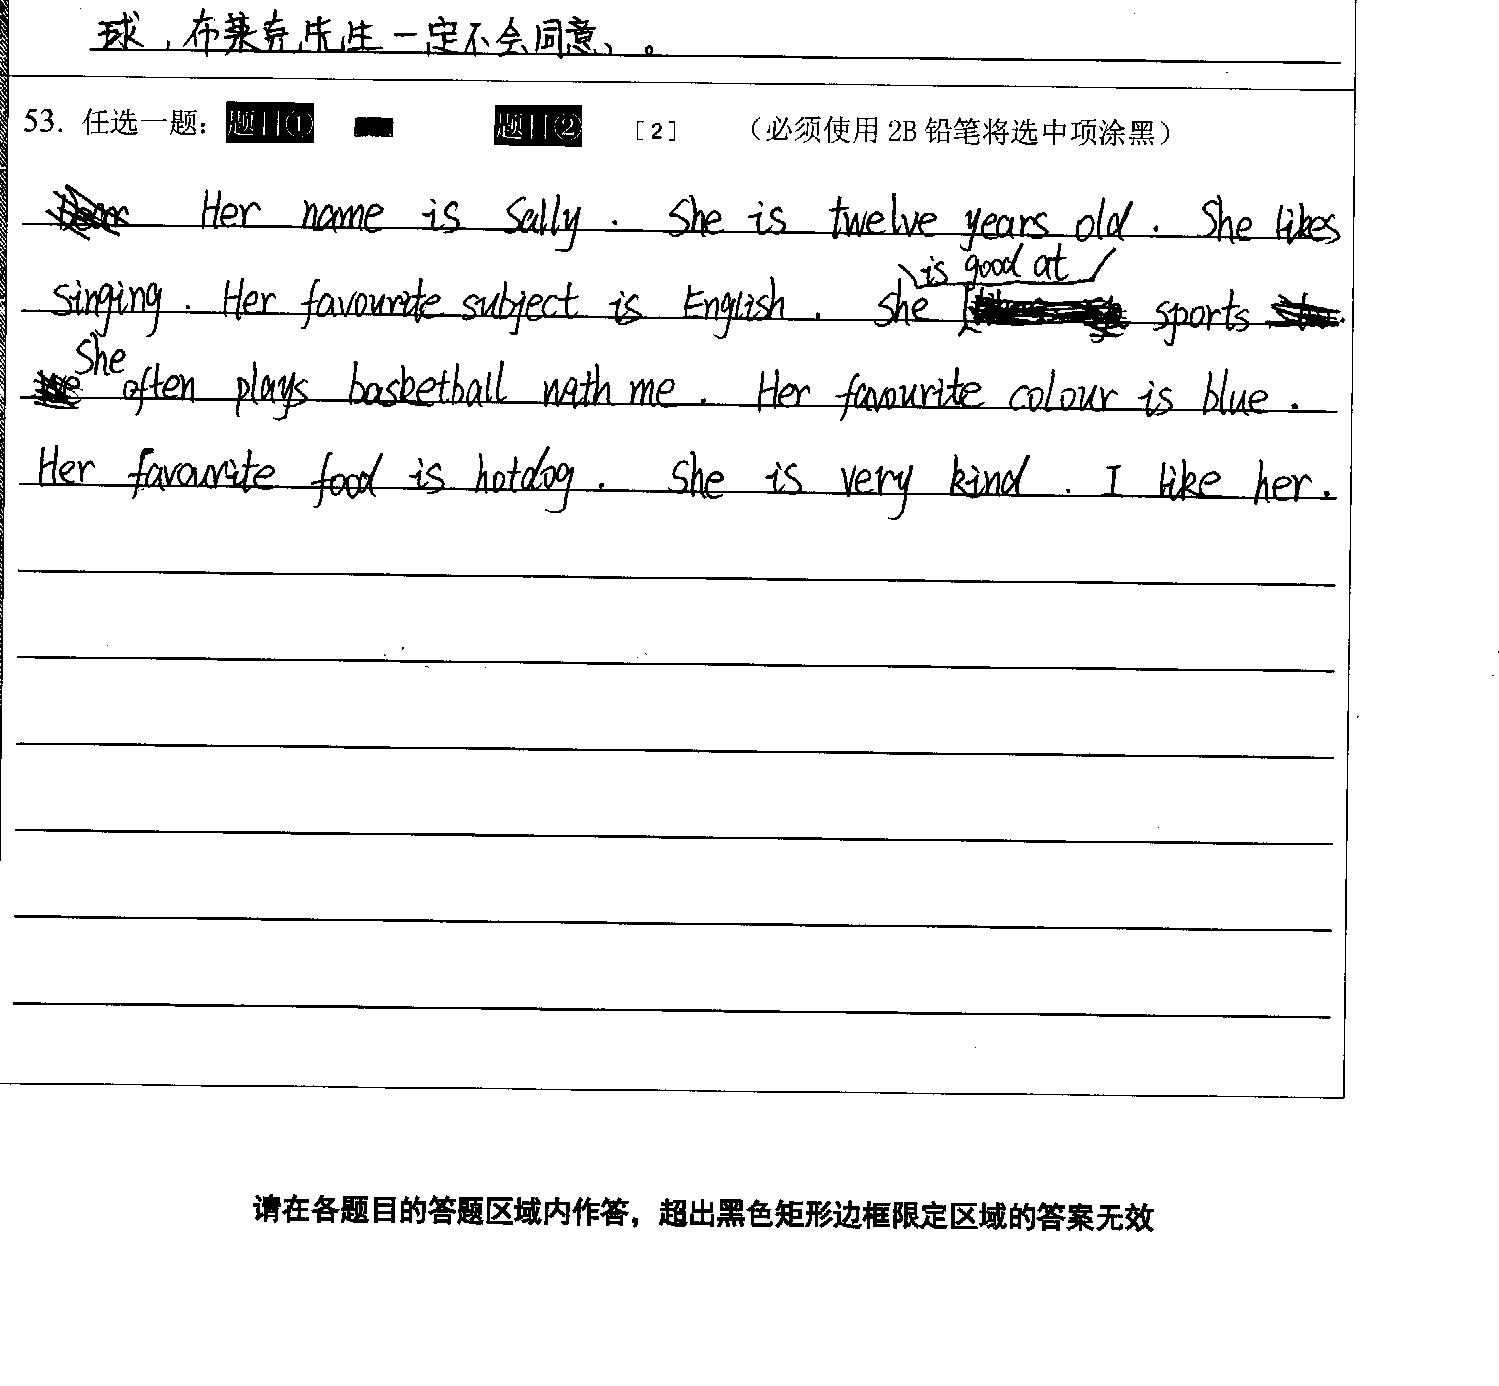 球，布莱克先生一定不会同意、。
53. 任选一题： 题目① 题目② [2] （必须使用 2B 铅笔将选中项涂黑）
Her name is Sally. She is twelve years old. She likes
singing. Her favourite subject is English. She is good at sports.
She often plays basketball with me. Her favourite colour is blue.
Her favourite food is hotdog. She is very kind. I like her.
请在各题目的答题区域内作答，超出黑色矩形边框限定区域的答案无效